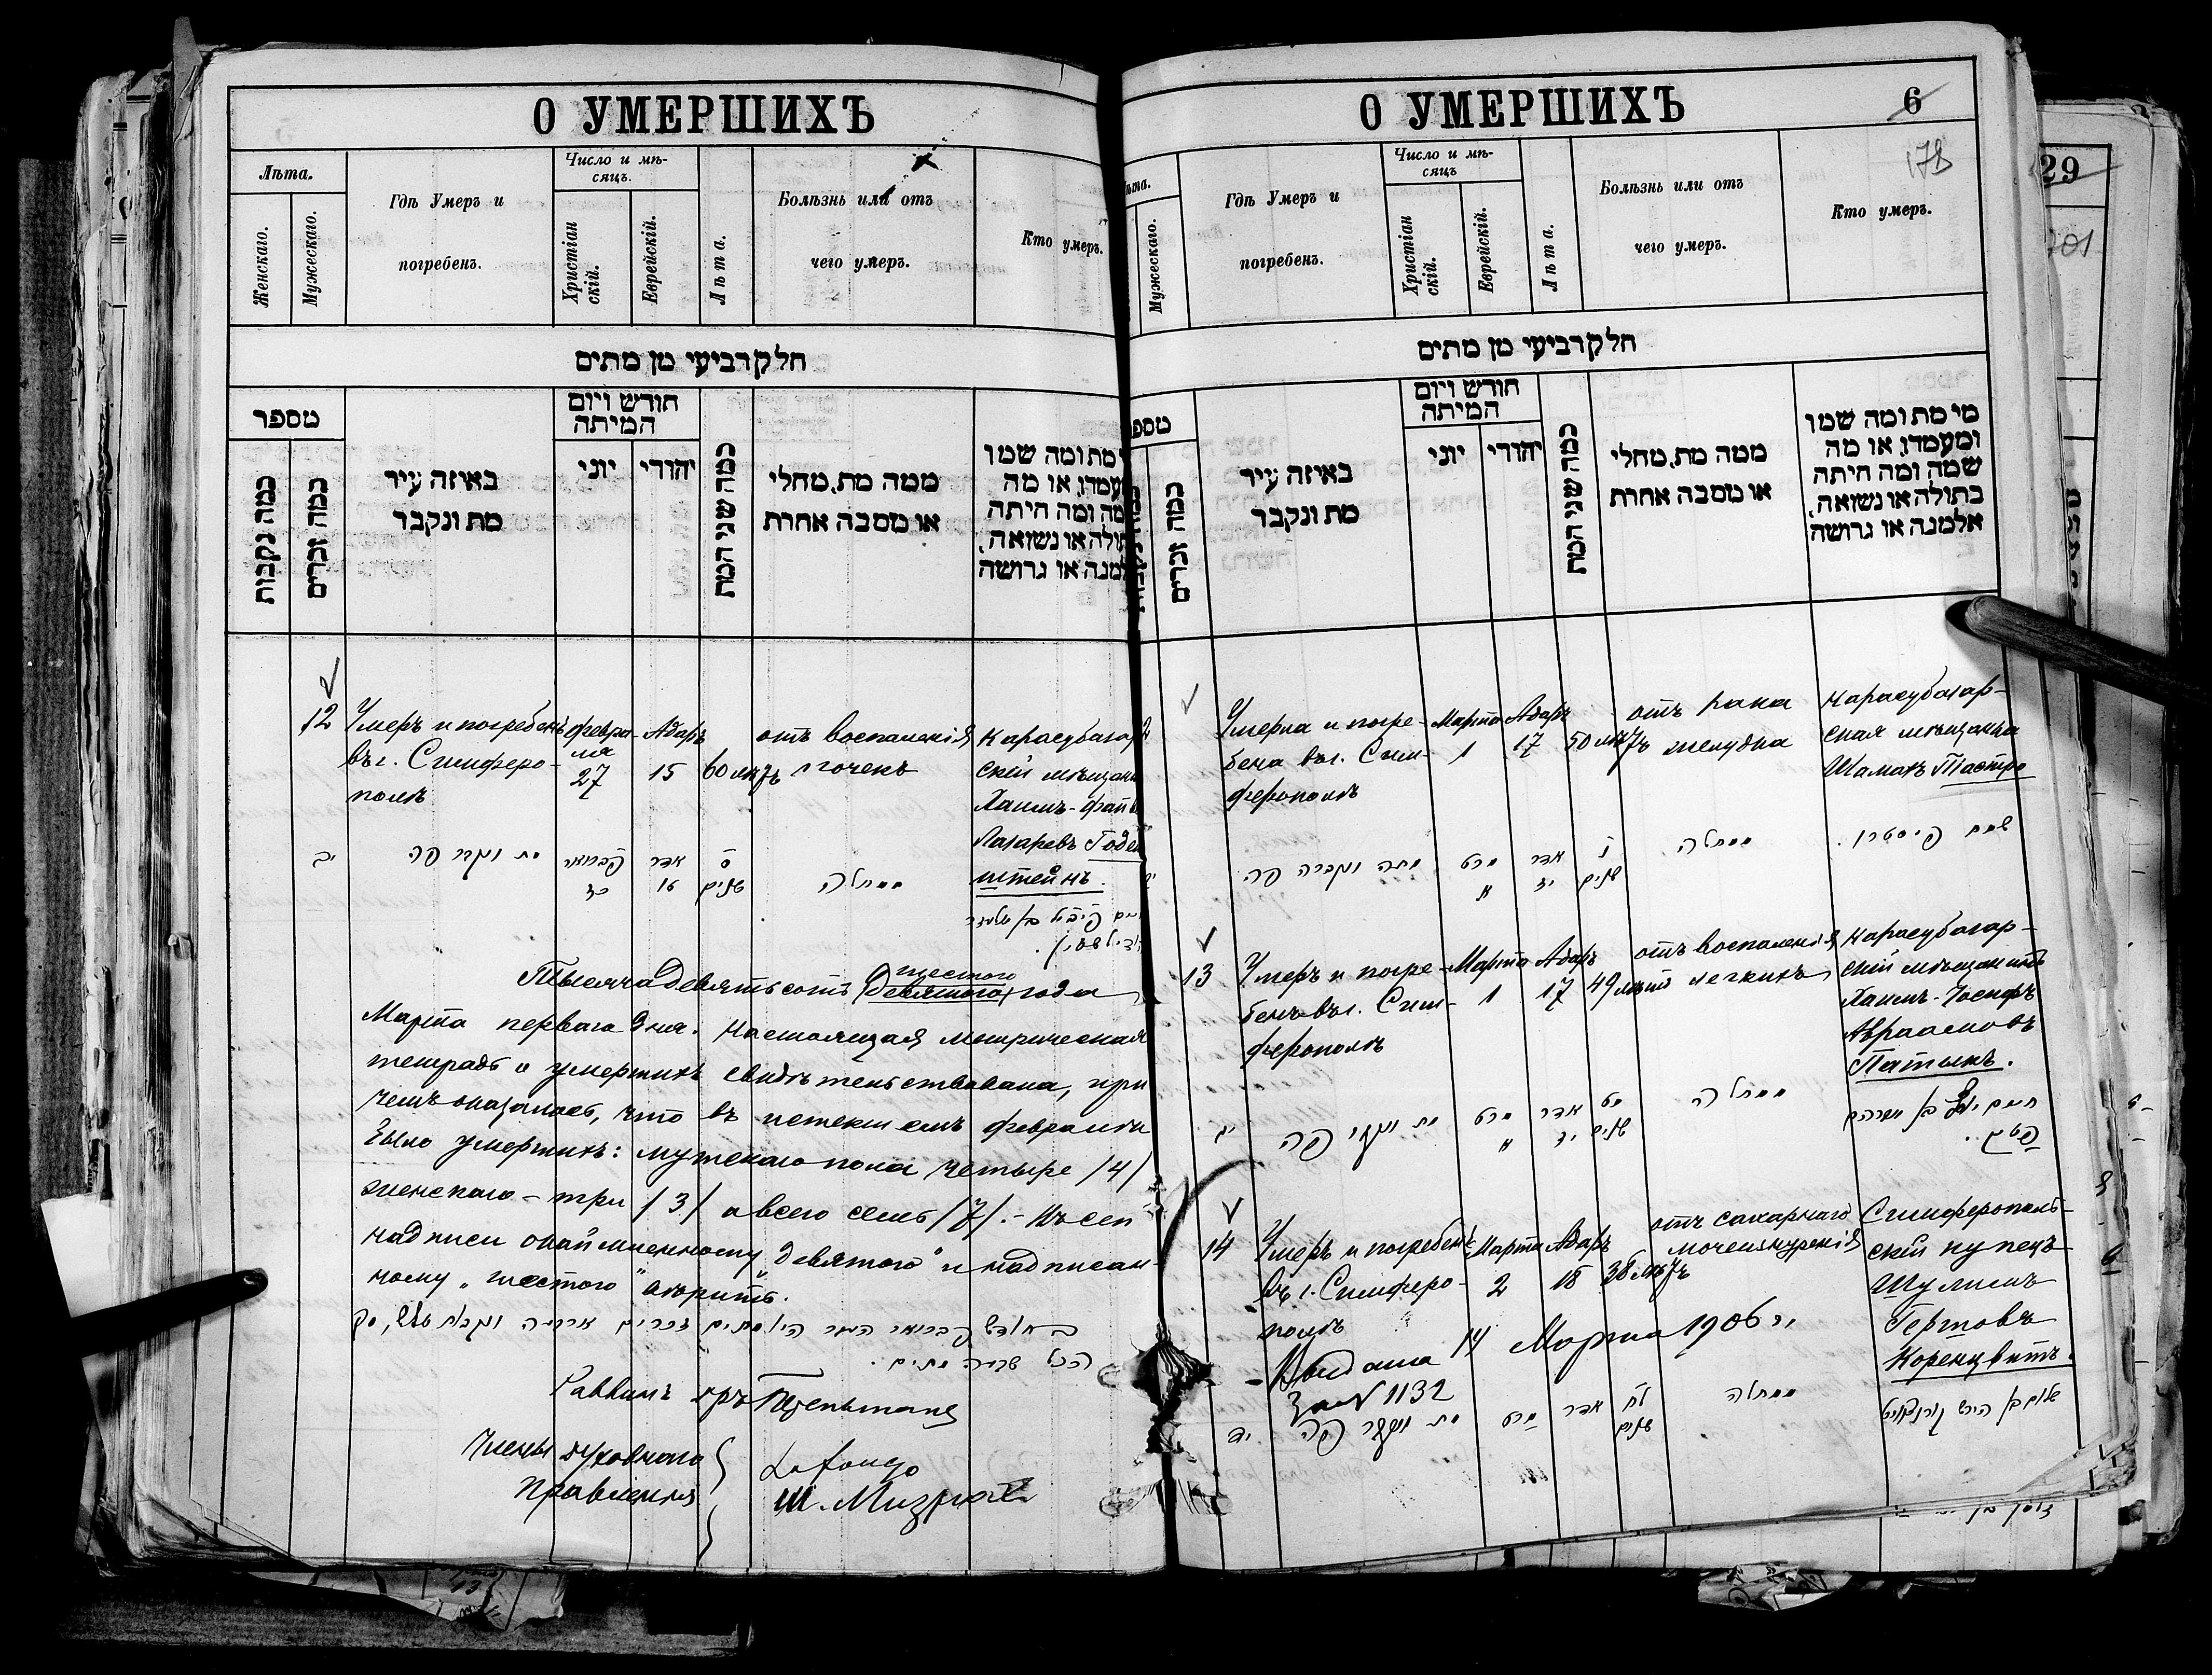 О УМЕРШИХЪ
Лѣта.
Женскаго.
Мужескаго.
Гдѣ Умеръ и
погребенъ.
Число и мѣ-
сяцъ.
Христіан
скій.
Еврейскій.
Лѣта.
Болѣзнь или отъ
чего умеръ.
Кто умеръ.
חלק רביעי מן מתים
מספר
כמה נקבות
כמה זכרים
באיזה עיר
מת ונקבר
חודש ויום
המיתה
יוני
יהודי
כמה שני המת
ממה מת, מחלי
או מסבה אחרת
מת ומה שמו
או מה
ומה היתה
או נשואה,
או גרושה
12
Умеръ и погребенъ
въ г. Симферо-
полѣ
Февра-
ля
27
Адаръ
15
60 лѣтъ
отъ воспаленія
почекъ
Карасубазар
скій мѣщан
Хаимъ-Фай
Лазаревъ Годе
штейнъ.
יב
מת ונקבר פה
פברואר
כז
אדר
טו
ס
שנים
ממחלה
Тысяча девятьсотъ девятаго года
шестого
Марта перваго дня. Настоящая метрическая
тетрадь о умершихъ свидѣтельствована, при
чемъ оказалось, что въ истекшемъ февралѣ
было умершихъ: мужскаго пола четыре /4/
женскаго - три /3/ а всего семь /7/. - Къ сей
надписи окаймленному „девятого" и надписан-
ному „шестого" вѣрить.
הכל שבעה מתים.
Раввинъ
Члены духовнаго
Правленія
О УМЕРШИХЪ
6
178
Мужескаго.
Гдѣ Умеръ и
погребенъ.
Число и мѣ-
сяцъ
Христіан
скій.
Еврейскій.
Лѣта.
Болѣзнь или отъ
чего умеръ.
Кто умеръ.
חלק רביעי מן מתים
כמה זכרים
באיזה עיר
מת ונקבר
חודש ויום
המיתה
יוני
יהודי
כמה שני המת
ממה מת, מחלי
או מסבה אחרת
מי מת ומה שמו
ומעמדו, או מה
שמה ומה היתה
בתולה או נשואה,
אלמנה או גרושה
Умерла и погре-
бена въ г. Сим-
ферополѣ
Марта
1
Адаръ
17
50 лѣтъ
отъ рака
желудка
Карасубазар-
ская мѣщанка
מתה ונקברה פה
מרט
א
אדר
יז
נ
שנים
ממחלה
13
Умеръ и погре-
бенъ въ г. Сим-
ферополѣ
Марта
1
Адаръ
17
49 лѣтъ
отъ воспаленія
легкихъ
Карасубазар-
скій мѣщанинъ
Хаимъ-Іосифъ
Авраамовъ
Патыкъ.
יג
מת ונקבר פה
מרט
א
אדר
יז
מט
שנים
ממחלה
14
Умеръ и погребенъ
въ г. Симферо-
полѣ
Марта
2
Адаръ
18
38 лѣтъ
отъ сахарнаго
мочеизнуренія
Симферополь-
скій купецъ
Шулимъ
Гершовъ
Коренцвитъ.
Выдана 14 Марта 1906 г.
за № 1132
יד
מת ונקבר פה
מרט
אדר
לח
שנים
ממחלה
29